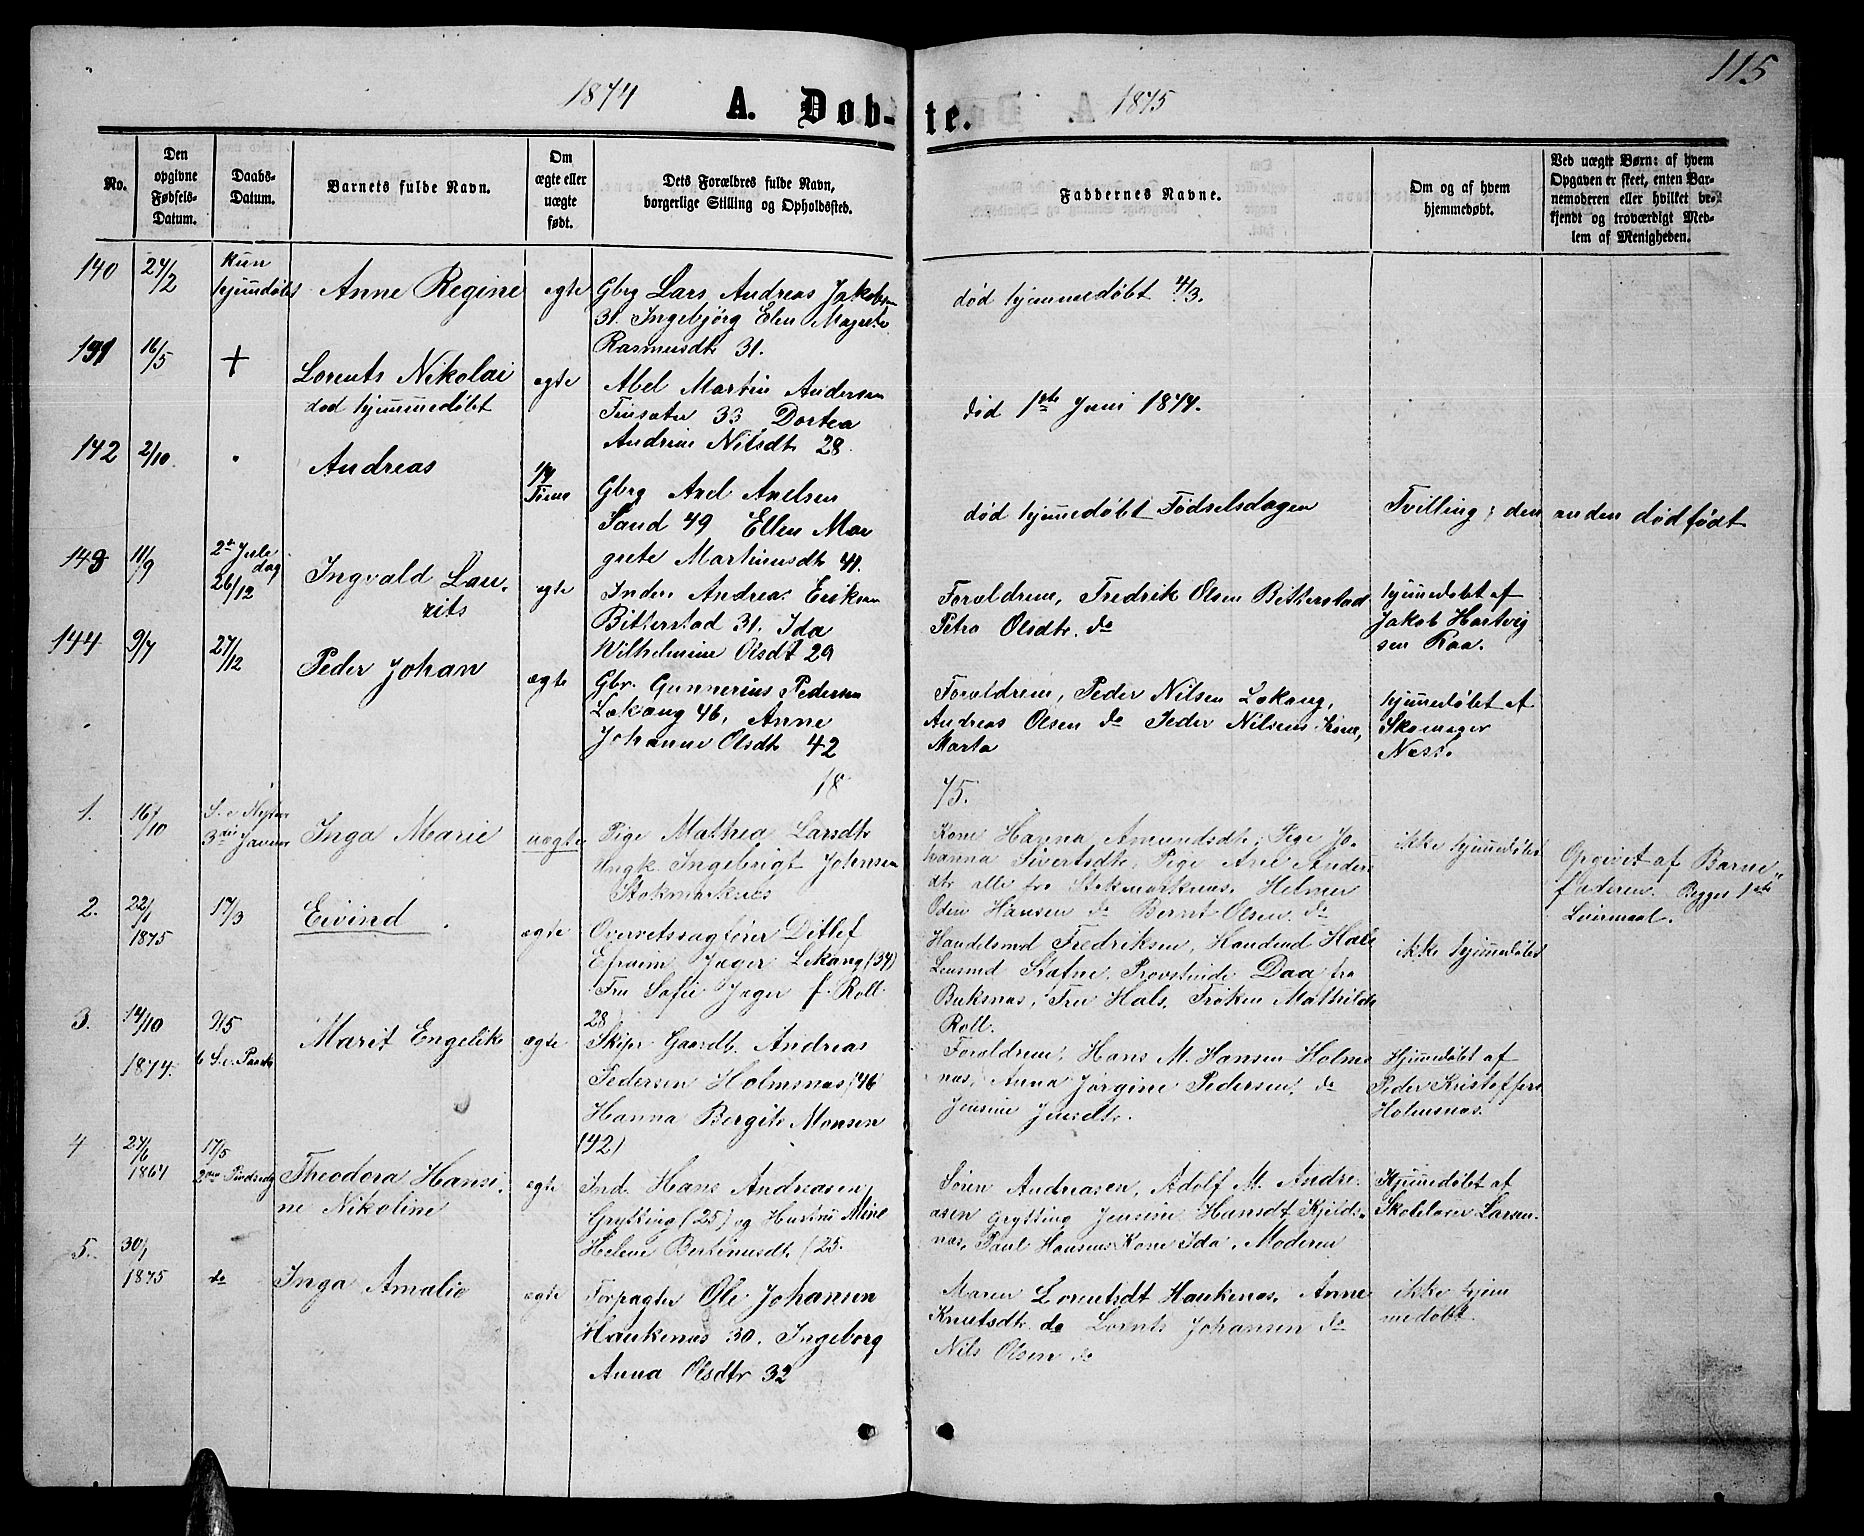 115
1874
A. Døb-te.
1875
No.
Den opgivne Fødsels-Datum.
Daabs-Datum.
Barnets fulde Navn.
Om ægte eller uægte født.
Dets Forældres fulde Navn, borgerlige Stilling og Opholdssted.
Faddernes Navne.
Om og af hvem hjemmedøbt.
Ved uægte Børn: af hvem Opgaven er skeet, enten Barnemoderen eller hvilket bekjendt og troværdigt Medlem af Menigheden.
140 24/2 kun hjemmedøbt Anne Regine egte
Gbrg Lars Andreas Jakobsen
31. Ingebjørg Elen Magrete
Rasmusdtr 31.
død hjemmedøbt 4/3.
141 16/5 + Lorents Nikolai
død hjemmedøbt
egte
Abel Martin Andersen
33, Dortea
Andrine Nilsdtr 28
død 1ste Juni 1874.
142 2/10 " Andreas
1/4 Time
Gbrg Axel Axelsen
Sand 49 Ellen Mar
grete Martinusdtr 41.
død hjemmedøbt Fødselsdagen
Tvilling; den anden dødfødt
143 11/9 2den Jule dag 26/12
Ingvald Lau-
rits
egte
Inder Andreas Eriksen
Bitterstad 31. Ida
Wilhelmine Olsdt 29
Forældrene, Fredrik Olsen Bitterstad
Petra Olsdtr. do
hjemmedøbt af
Jakob Hartvig
sen Raa.
144 9/7 27/12
Peder Johan
ægte
Gbr. Gunnerius Pedersen
Lekang 46, Anne
Johanne Olsdtr 42
Forældrene, Peder Nilsen Lekang,
Andreas Olsen do Peder Nilsens Kone,
Marta
hjemmedøbt af
Skomager
Ness.
18 75.
1. 16/10 S. e. Nytaar
3die Januar
Inga Marie
uægte
Pige Mathea Larsdtr
Ungk. Ingebrigt Johnsen
Stokmarknæs
Kone Hanna Amundsdtr, Pige Jo-
hanna Sivertsdtr, Pige Ane Anders
dtr alle fra Stokmarknæs. Helmer
Odin Hansen do Bernt Olsen do
ikke hjemmedøbt
Opgivet af Barne-
faderen. Begges 1ste
Leiermaal.
2. 22/1
1875
17/3
Eivind
ægte
Overretssagfører Ditlef
Efraim Jæger Lekang (34)
Fru Sofie Jæger f. Roll
28
Handelsmd Fredriksen, Handmd Hals
Lensmd Stafne, Provstinde Daa fra
Buksnæs, Fru Hals, Frøken Mathilde
Roll.
ikke hjemmedøbt
3. 14/10
1874.
2/5
6 S. e. Paaske
Marit Engelike
ægte
Skipr Gaardb. Andreas
Pedersen Holmsnæs (46
Hanna Bergite Monsen
(42)
Forældrene, Hans M. Hansen Holms
næs, Anna Jørgine Pedersen, do
Jensine Jensdtr.
Hjemmedøbt af
Peder Kristoffers
Holmsnæs.
4 24/6
1864
17/5
2den Pindsedg
Theodora Hansi-
ne Nikoline
egte
Ind. Hans Andreasen
Grytting (25) og Hustru Mine
Helene Bertinusdtr (25.
Søren Andreasen, Adolf M. Andre-
asen Grytting Jensine Hansdt Kjilds-
næs, Paul Hansens Kone Ida. Moderen
Hjemmedøbt af
Skolelærer Larsen.
5. 30/1
1875
do
Inga Amalie
egte
Forpagter Ole Johansen
Haukenæs 30. Ingeborg
Anna Olsdtr 32
Maren Lorentsdt Haukenæs. Anne
Knutsdtr do Lornts Johansen do
Nils Olsen do
ikke hjem
medøbt.